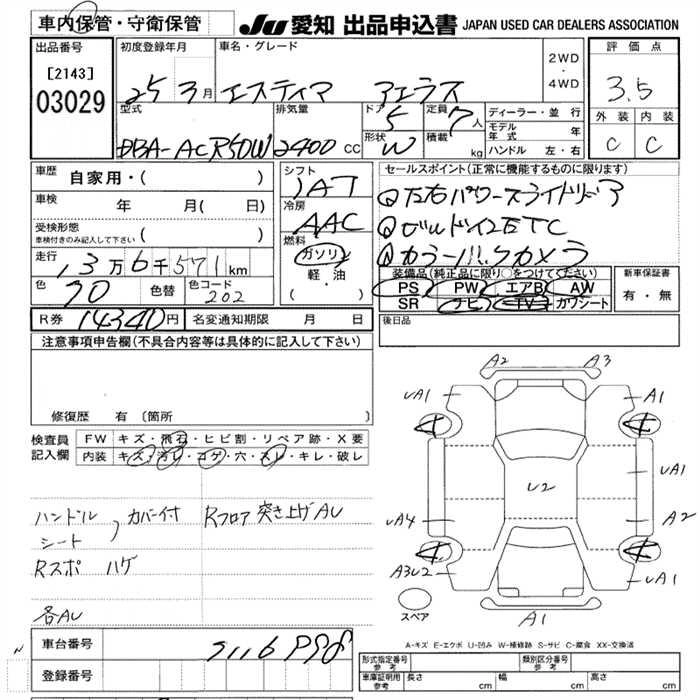 車内保管・守衛保管
JU 愛知 出品申込書 JAPAN USED CAR DEALERS ASSOCIATION
出品番号
[2143]
03029
初度登録年月
25 3月
車名・グレード
エスティマ アエラス
2WD
・
4WD
評価点
3.5
外装 内装
C C
型式
DBA-ACR50W
排気量
2400 CC
ドア
5
形状
W
定員
7人
積載
kg
ディーラー・並行
モデル年式 年
ハンドル 左・右
車歴
自家用・( )
車検 年 月( 日)
受検形態
車検付きのみ記入して下さい ( )
走行
13万6千571km
色
70
色替
色コード
202
シフト
IAT
冷房
AAC
燃料
ガソリン
軽・油
( ・ )
セールスポイント(正常に機能するものに限ります)
①左右パワースライドドア
②ビルドインETC
③カラーバックカメラ
装備品(純正品に限り○をつけてください)
PS PW エアB AW
SR ナビ TV カワシート
新車保証書
有・無
後日品
R券 14340円 名変通知期限 月 日
注意事項申告欄(不具合内容等は具体的に記入して下さい)
修復歴 有 〔箇所
検査員記入欄
FW キズ・飛石・ヒビ割・リペア跡・X要
内装 キズ・汚レ・コゲ・穴・スレ・キレ・破レ
ハンドル
シート
カバー付 Rフロア 突き上げAU
Rスポ ハゲ
各AU
A2 A3
UA1 A1
U2 UA1
UA4 A2
A3U2 UA1
A1
スペア
A-キズ E-エクボ U-凹み W-補修跡 S-サビ C-腐食 XX-交換済
車台番号
登録番号
形式指定番号 参考
類別区分番号 参考
車庫証明用 参考 長さ cm 幅 cm 高さ cm